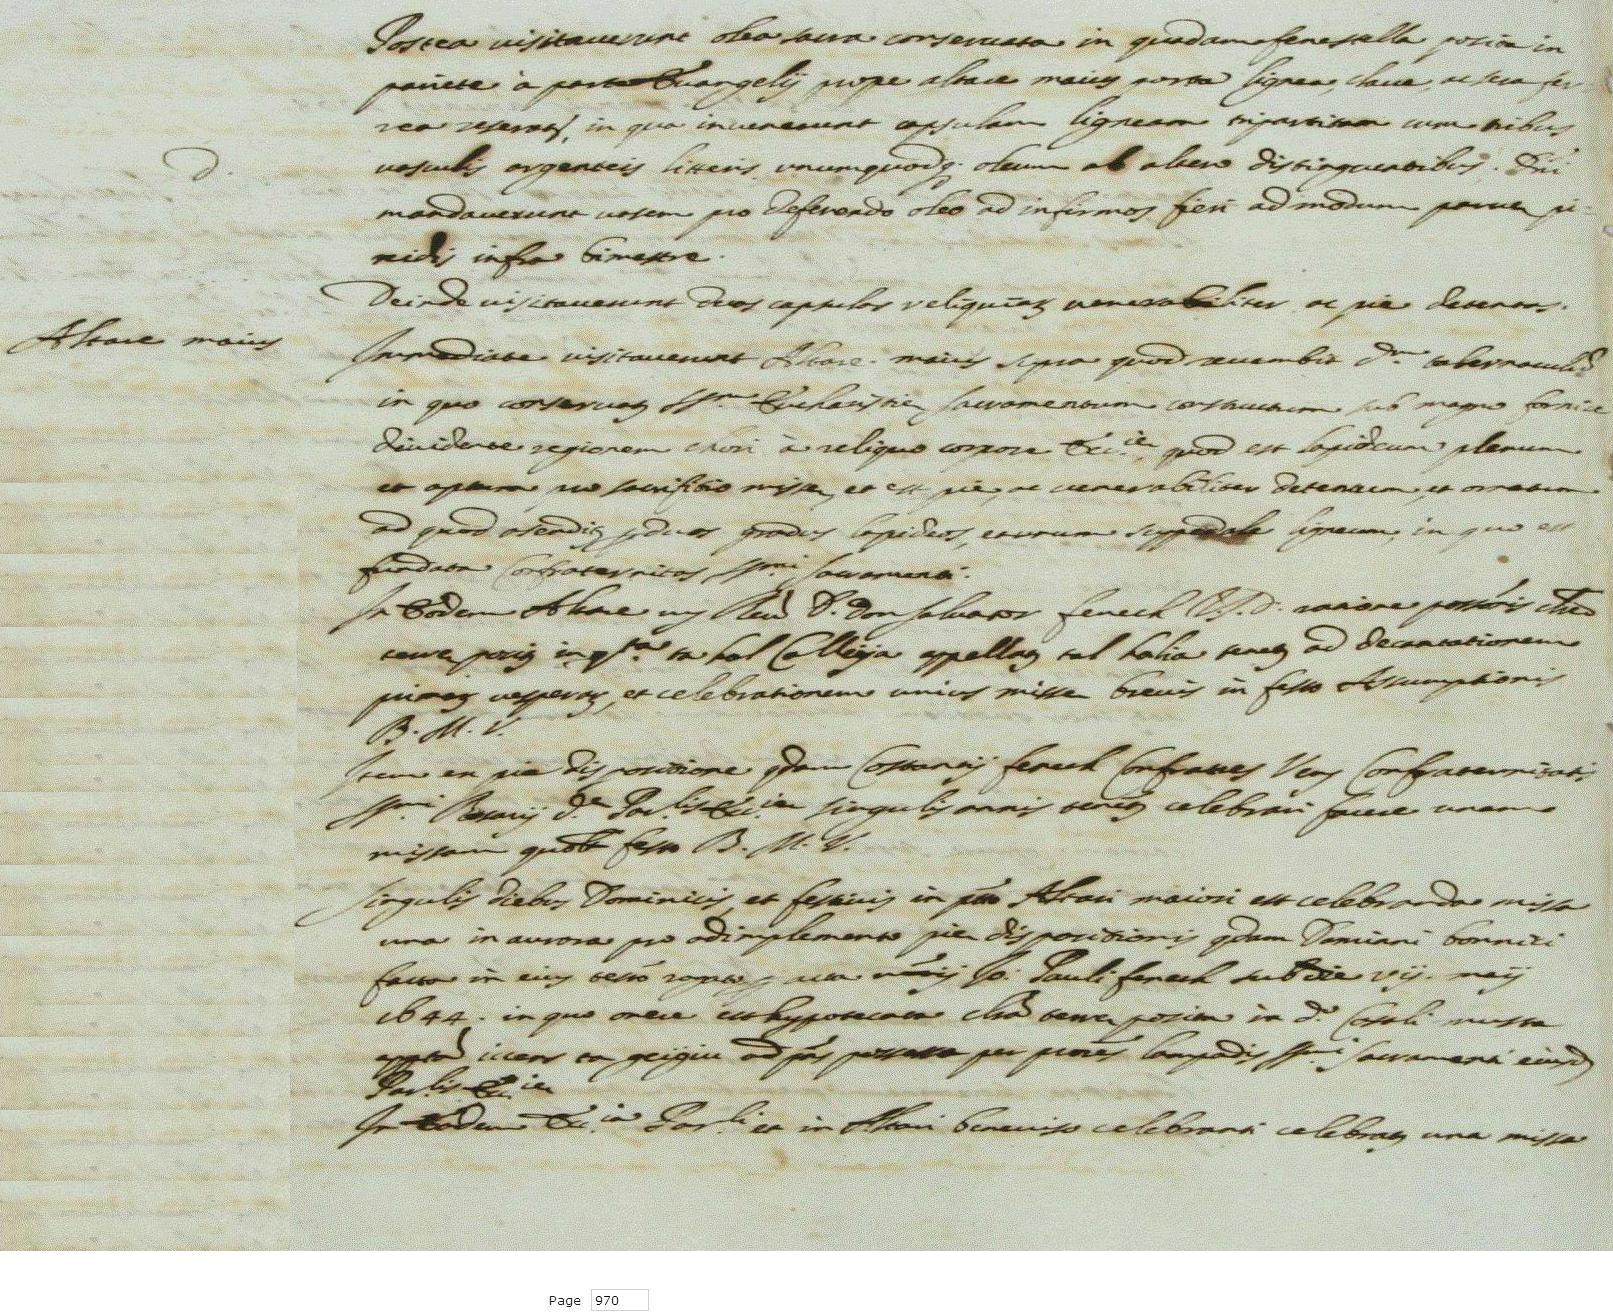 Postea visitauerunt olea sacra conseruata in quadam fenestella posita in
pariete à parte Euangelij prope altare maius porta lignea, claue, ac sera fer-
rea reseratâ, in qua inuenerunt capsulam ligneam tripartitam cum tribus
vasculis argenteis litteris unumquodq; oleum ab altero distinguentibus.
D.
mandauerunt uasem pro deferendo oleo ad infirmos fieri ad modum paruæ pi-
xidis infra bimestre.
Deinde visitauerunt duas capsulas reliquiarũ venerabiliter ac pie detentas.
Altare maius
Immediate visitauerunt Altare maius supra quod recumbit dm tabernaculũ
in quo conseruatr SSmum Eucharistiæ sacramentum constructum sub magno fornice
diuidente regionem chori à reliquo corpore Ecc.iæ quod est lapideum plenum
et aptum pro sacrifitio missæ, et est pie, ac venerabiliter detentum, et ornatum
ad quod ascenditr p duos gradus lapideos, et unum suppedale ligneum, in quo est
fundata Confraternitas SSmi Sacramenti.
In Eodem Altare Reud D. Don Saluator fenech ratione
terræ in ta hal Calleja appellatæ tal halia tenetr ad decantationem
vesperarũ, et celebrationem unius missæ breuis in festo Assumptionis
B. M. V.
Item ex pia dispositione qdam Costantij fenech Confratres Ven Confraternitatis
SSmi Rosarij dæ Par.lis Ecc.iæ singulis annis celebrari facere unam
missam quolt festo B. M. V.
Singulis diebus Dominicis, et festiuis in pto Altari maiori est celebranda missa
una in aurora pro adimplemento piæ dispositionis qdam Damiani bonnici
facta in eius testo Pauli fenech sub die vij. maij
1644. in quo onere est hypotecata terræ posita in do Casali musta
lampadis SSmi Sacramenti eiusd
Par.lis Ecc.iæ
In Eadem Ecc.ia Par.li et in Altari beneuiso celebranti celebratr una missa
Page 970